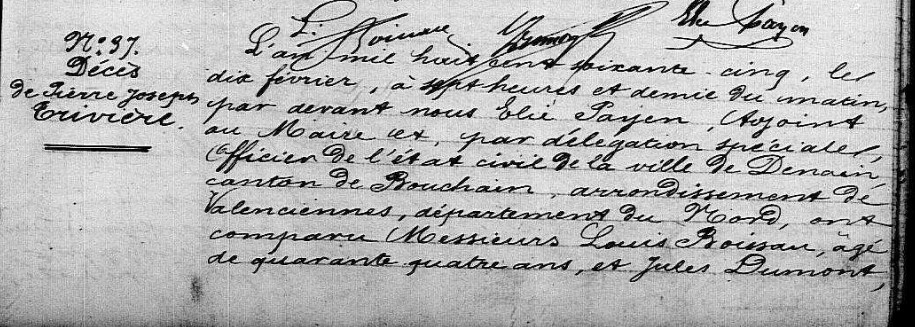 L. Boisseau Dumont Elie Payen
N.o 37.
Décès
de Pierre Joseph
Trivière.
L'an mil huit cent soixante-cinq, les
dix février, à sept heures et demie du matin,
par devant nous Elie Payen, Adjoint
au Maire et, par délégation spéciale,
Officier de l'état civil de la ville de Denain
canton de Bouchain, arrondissement de
Valenciennes, département du Nord, ont
comparu Messieurs Louis Boissau, âgé
de quarante quatre ans, et Jules Dumont,